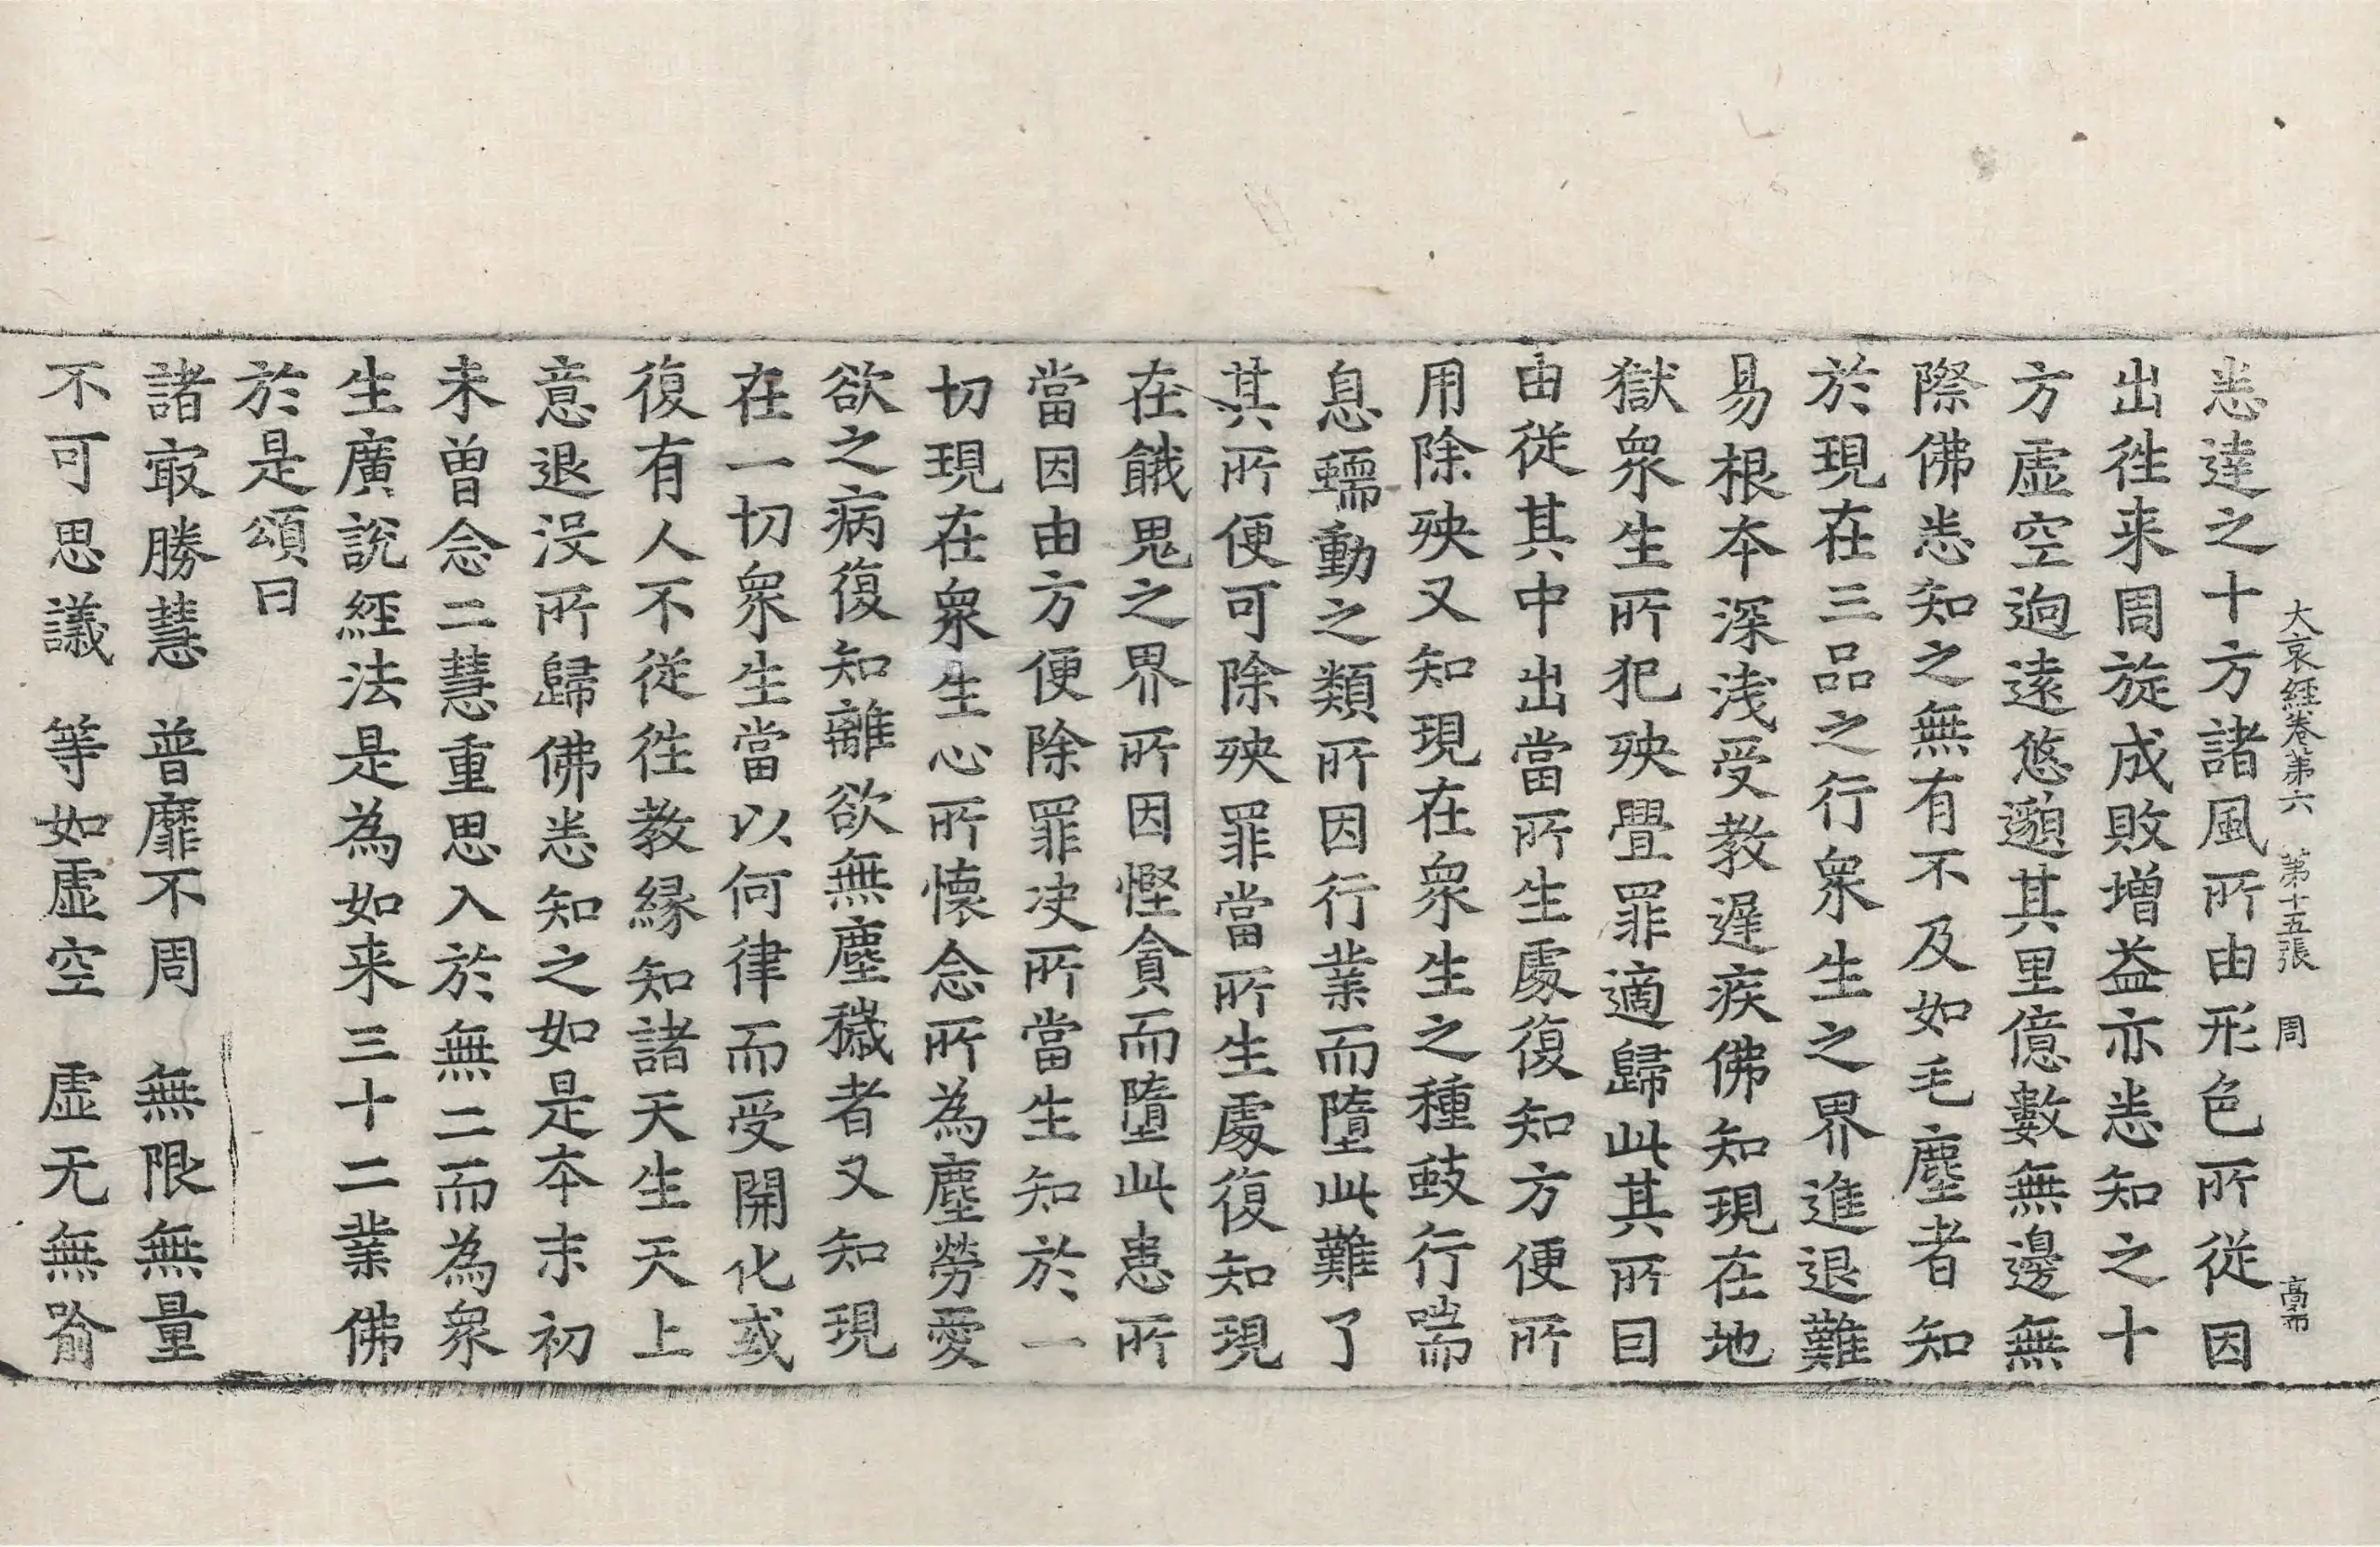 大哀經卷第六　第十五張　周　高第
悉達之十方諸風所由形色所從因
出徃来周旋成敗增益亦悉知之十
方虛空逈遠悠邈其里億數無邊無
際佛悉知之無有不及如毛塵者知
於現在三品之行衆生之界進退難
易根本深淺受教遲疾佛知現在地
獄衆生所犯殃舋罪適歸此其所因
由從其中出當所生處復知方便所
用除殃又知現在衆生之種蚑行喘
息蠕動之類所因行業而墮此難了
其所便可除殃罪當所生處復知現
在餓鬼之界所因慳貪而墮此患所
當因由方便除罪决所當生知於一
切現在衆生心所懷念所為塵勞愛
欲之病復知離欲無塵穢者又知現
在一切衆生當以何律而受開化或
復有人不從徃教緣知諸天生天上
意退没所歸佛悉知之如是本末初
未曽念二慧重思入於無二而為衆
生廣說經法是為如来三十二業佛
於是頌曰
諸㝡勝慧　普靡不周　無限無量
不可思議　等如虛空　虛无無喻